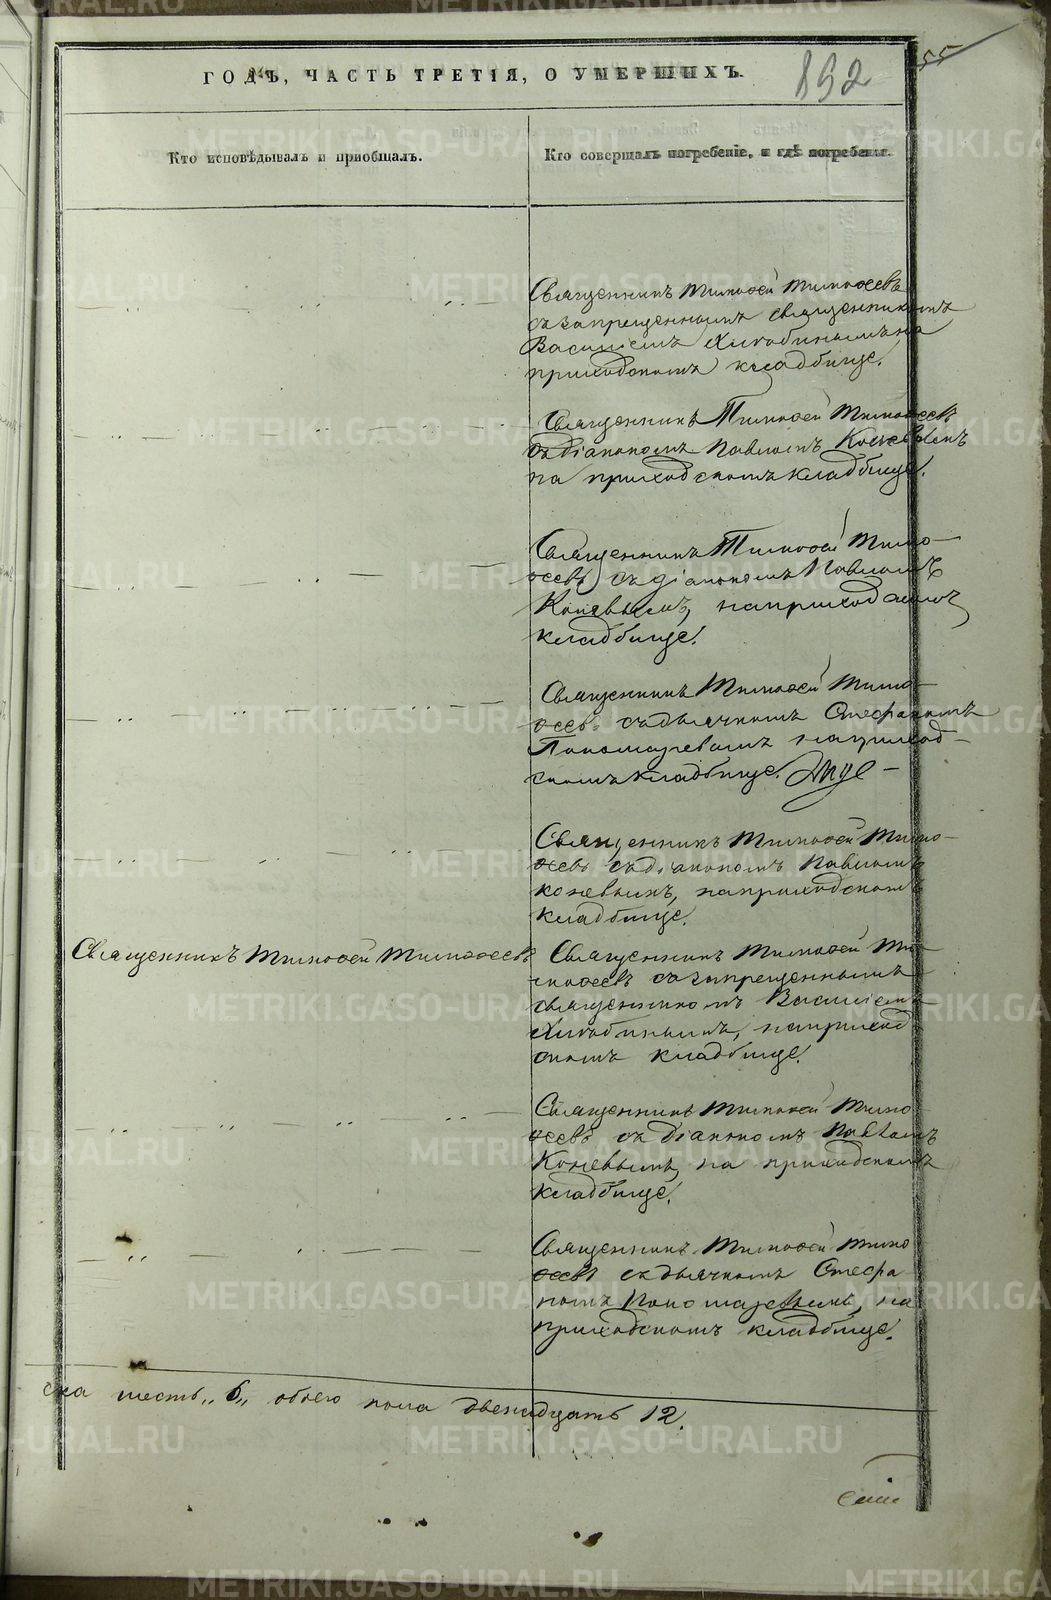 ГОДЪ, ЧАСТЬ ТРЕТІЯ, О УМЕРШИХЪ.
892
55
Кто исповѣдывалъ и пріобщалъ.
Кто совершалъ погребеніе, и гдѣ погребены.
Священникъ Тимоѳей Тимоѳеевъ
съ запрещеннымъ священникомъ
Василіемъ на
приходскомъ кладбище.
Священникъ Тимоѳей Тимоѳеевъ
съ діакономъ Павломъ Коневымъ
на приходскомъ кладбище.
Священникъ Тимоѳей Тимо-
ѳеевъ съ діакономъ Павломъ
Коневымъ, на приходскомъ
кладбище.
Священникъ Тимоѳей Тимо-
ѳеевъ съ дьячкомъ Стефаномъ
Пономаревымъ на приход-
скомъ кладбище.
Священникъ Тимоѳей Тимо-
ѳеевъ съ діакономъ Павломъ
Коневымъ, на приходскомъ
кладбище.
Священникъ Тимоѳей Тимоѳеевъ
Священникъ Тимоѳей Ти-
моѳеевъ съ запрещеннымъ
священникомъ Василіемъ
на приход
скомъ кладбище.
Священникъ Тимоѳей Тимо
ѳеевъ съ діакономъ Павломъ
Коневымъ, на приходскомъ
кладбище.
Священникъ Тимоѳей Тимо
ѳеевъ съ дьячкомъ Стефа
номъ Пономаревымъ, на
приходскомъ кладбище.
ска шесть „6„ обоего пола двенадцать 12.
METRIKI.GASO-URAL.RU